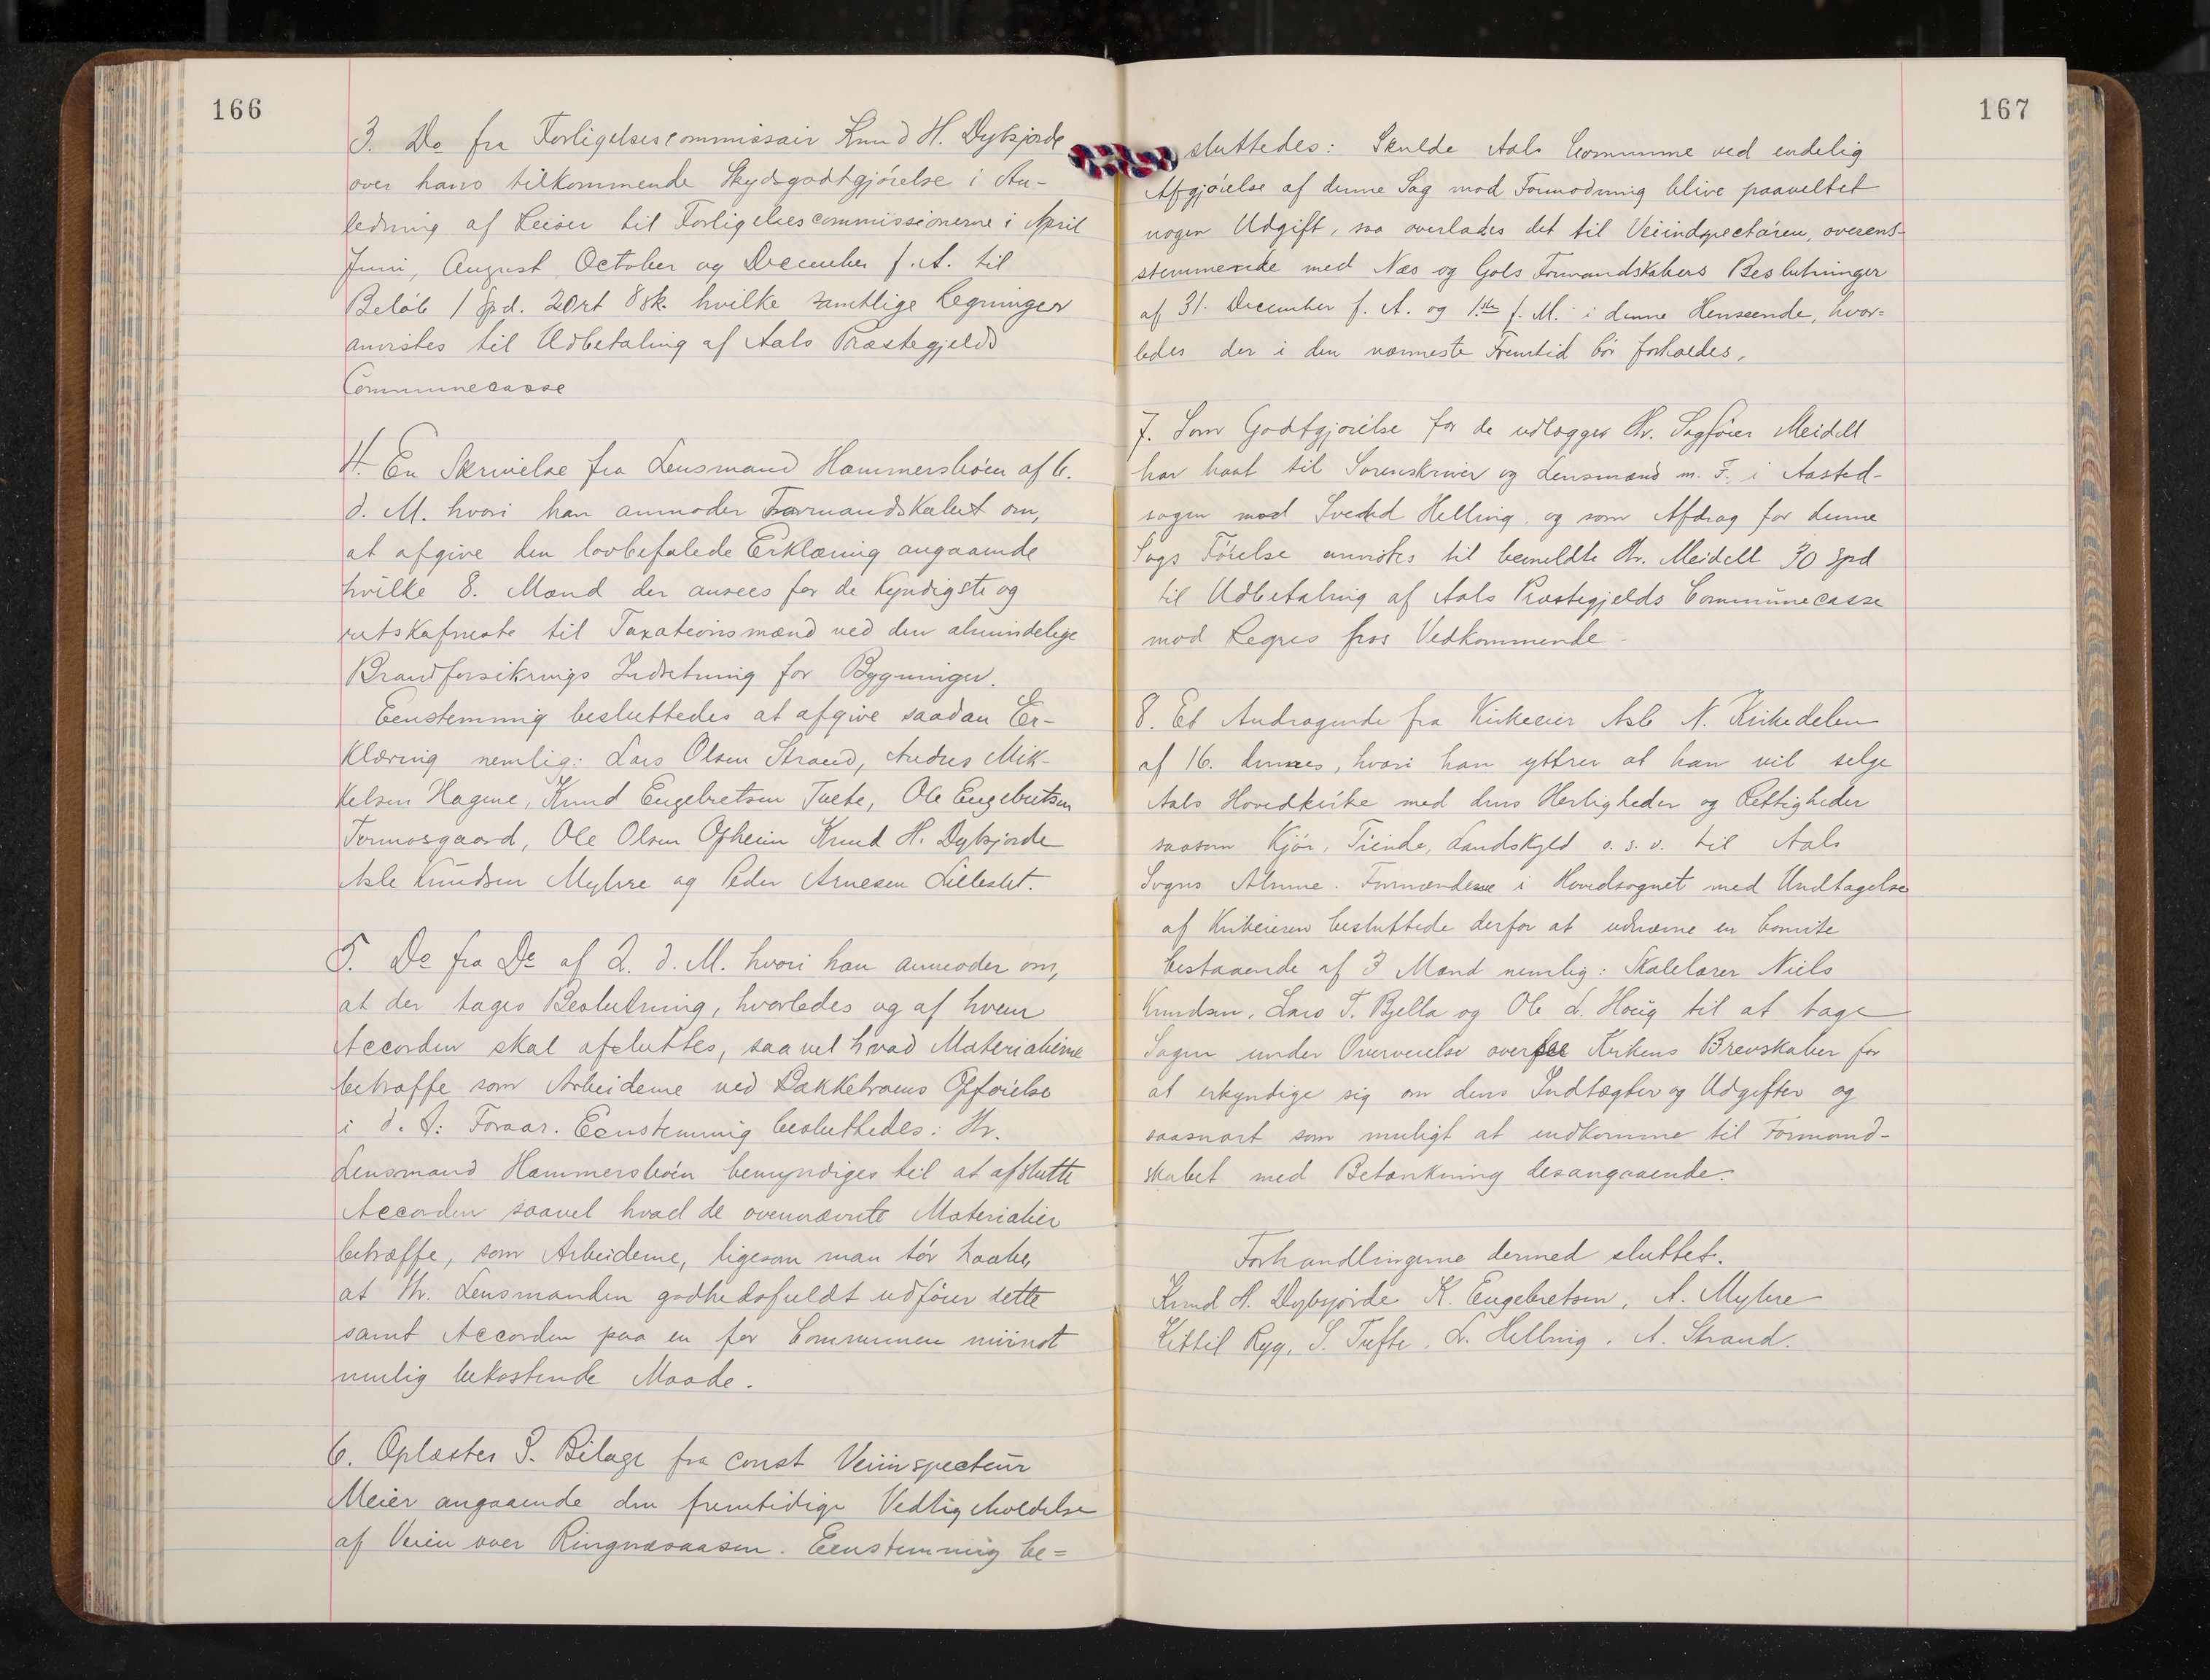 166
3. Do fra Forligelsescommissair Knud H. Dybsjorde
over hans tilkommende Skydsgodtgjörelse i An-
ledning af Reiser til Forligelsescommissionerne i April
Juni, August, October og December f. A. til
Beløb 1 Spd. 2 Ort 8 sk. hvilke samtlige Regninger
anvistes til Udbetaling af Aals Præstegjelds
Communecasse
4. En Skrivelse fra Lensmand Hammersböen af 6.
d. M. hvori han anmoder Formandskabet om,
at afgive den lovbefalede Erklæring angaaende
hvilke 8. Mænd der ansees for de kyndigste og
retskafneste til Taxationsmænd ved den almindelige
Brandforsikrings Indretning for Bygninger.
Eenstemmig besluttedes at afgive saadan Er-
klæring nemlig: Lars Olsen Strand, Andres Mik-
kelsen Hagene, Knud Engebretsen Tuete, Ole Engebretsen
Tormosgaard, Ole Olsen Opheim Knud H. Dybsjorde
Asle Knudsen Myhre og Peder Arnesen Lilleslet.
5. Do fra Do af 2. d. M. hvori han anmoder om,
at der tages Beslutning, hvorledes og af hvem
Accorden skal afsluttes, saavel hvad Materialierne
betræffe som Arbeiderne ved Bakkebroens Opførelse
i d. A: Foraar. Eenstemmig besluttedes: Hr.
Lensmand Hammersböen bemyndiges til at afslutte
Accorden saavel hvad de ovennævnte Materialier
betræffe, som Arbeiderne, ligesom man tör haabe,
at Hr. Lensmanden godhedsfuldt udförer dette
samt Accorden paa en for Communen mindst
mulig bekostende Maade.
6. Oplæstes 3. Bilage fra const Veiinspecteur
Meier angaaende den fremtidige Vedligeholdelse
af Veien over Ringnæsaasen. Eenstemmig be=
167
sluttedes: Skulde Aals Commune ved endelig
Afgjörelse af denne Sag mod Formodning blive paaveltet
nogen Udgift, saa overlades det til Veiindspectören, overens-
stemmende med Næs og Gols Formandskabers Beslutninger
af 31. December f. A. og 1.ste f. M. i denne Henseende, hvor=
ledes der i den nærmeste Fremtid bör forholdes.
7. Som Godtgjörelse for de udlægges Hr. Sagförer Meidell
har havt til Sorenskriver og Lensmand m. F. i Aasted-
sagen mod Sveded Helling, og som Afdrag for denne
Sags Förelse anvistes til bemeldte Hr. Meidell 30 Spd
til Udbetaling af Aals Præstegjelds Communecasse
mod Regres hos Vedkommende
8. Et Andragende fra Kirkeeier Asle N. Kirkedelen
af 16. dennes, hvori han yttrer at han vil selge
Aals Hovedkirke med dens Herligheder og Rettigheder
saasom Kjör, Tiende, Landskyld o. s. v. til Aals
Sogns Almue. Formændene i Hovedsognet med Undtagelse
af Kirkeieren besluttede derfor at udnævne en Comite
bestaaende af 3 Mand nemlig: Skolelærer Niels
Knudsen, Lars T. Bjella og Ole L. Houg til at tage
Sagen under Overveielse overfee Kirkens Brevskaber for
at erkyndige sig om dens Indtægter og Udgifter og
saasnart som muligt at indkomme til Formand-
skabet med Betænkning desangaaende.
Forhandlingerne dermed sluttet.
Knud H. Dybsjorde K. Engebretsen, A. Myhre
Kittil Ryg, S. Tufte, L. Helling. A. Strand.